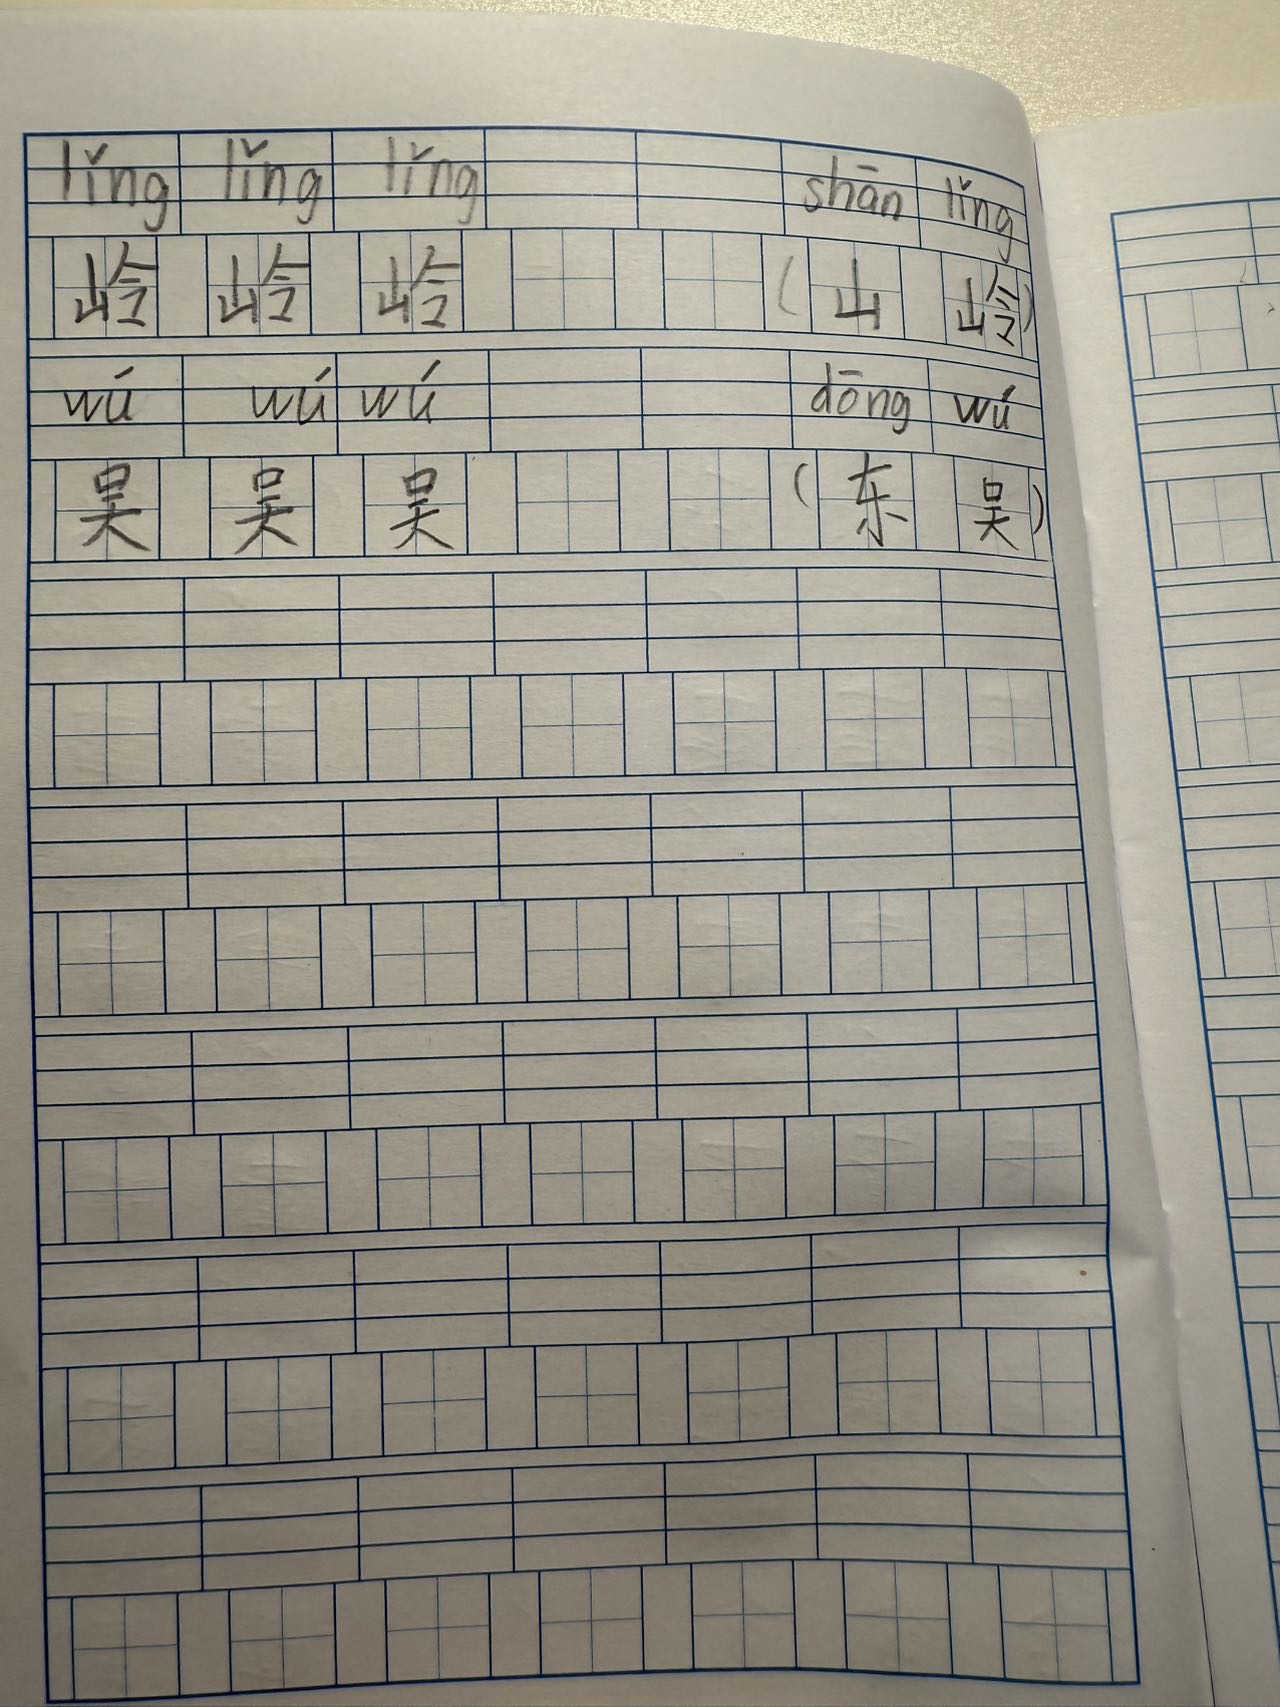 lǐng lǐng lǐng shān lǐng
岭 岭 岭 (山 岭)
wú wú wú dōng wú
吴 吴 吴 (东 吴)